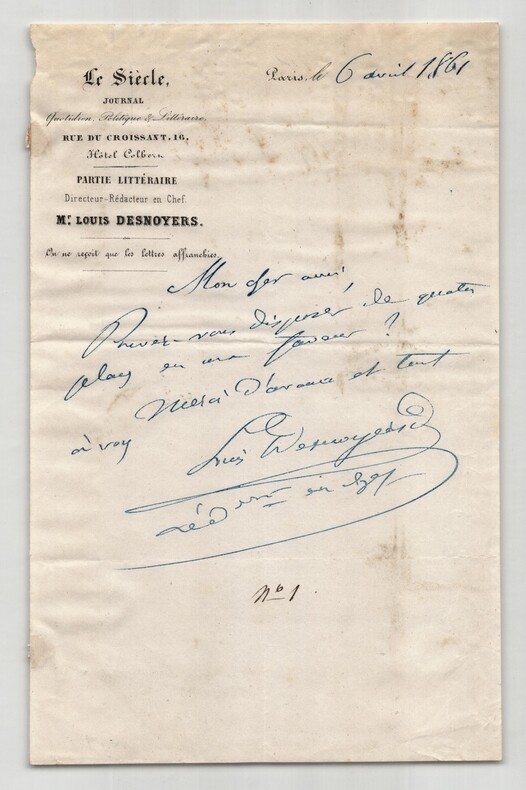 Le Siècle,
JOURNAL
Quotidien, Politique & Littéraire,
RUE DU CROISSANT, 16,
Hôtel Colbert
PARTIE LITTÉRAIRE
Directeur-Rédacteur en Chef
Mr. LOUIS DESNOYERS.
On ne reçoit que les lettres affranchies.
Paris, le 6 avril 1861
Mon cher ami,
Pouvez-vous disposer de quatre
places en ma faveur ?
Merci d'avance et tout
à vous
Louis Desnoyers
Réd en chef
No 1.